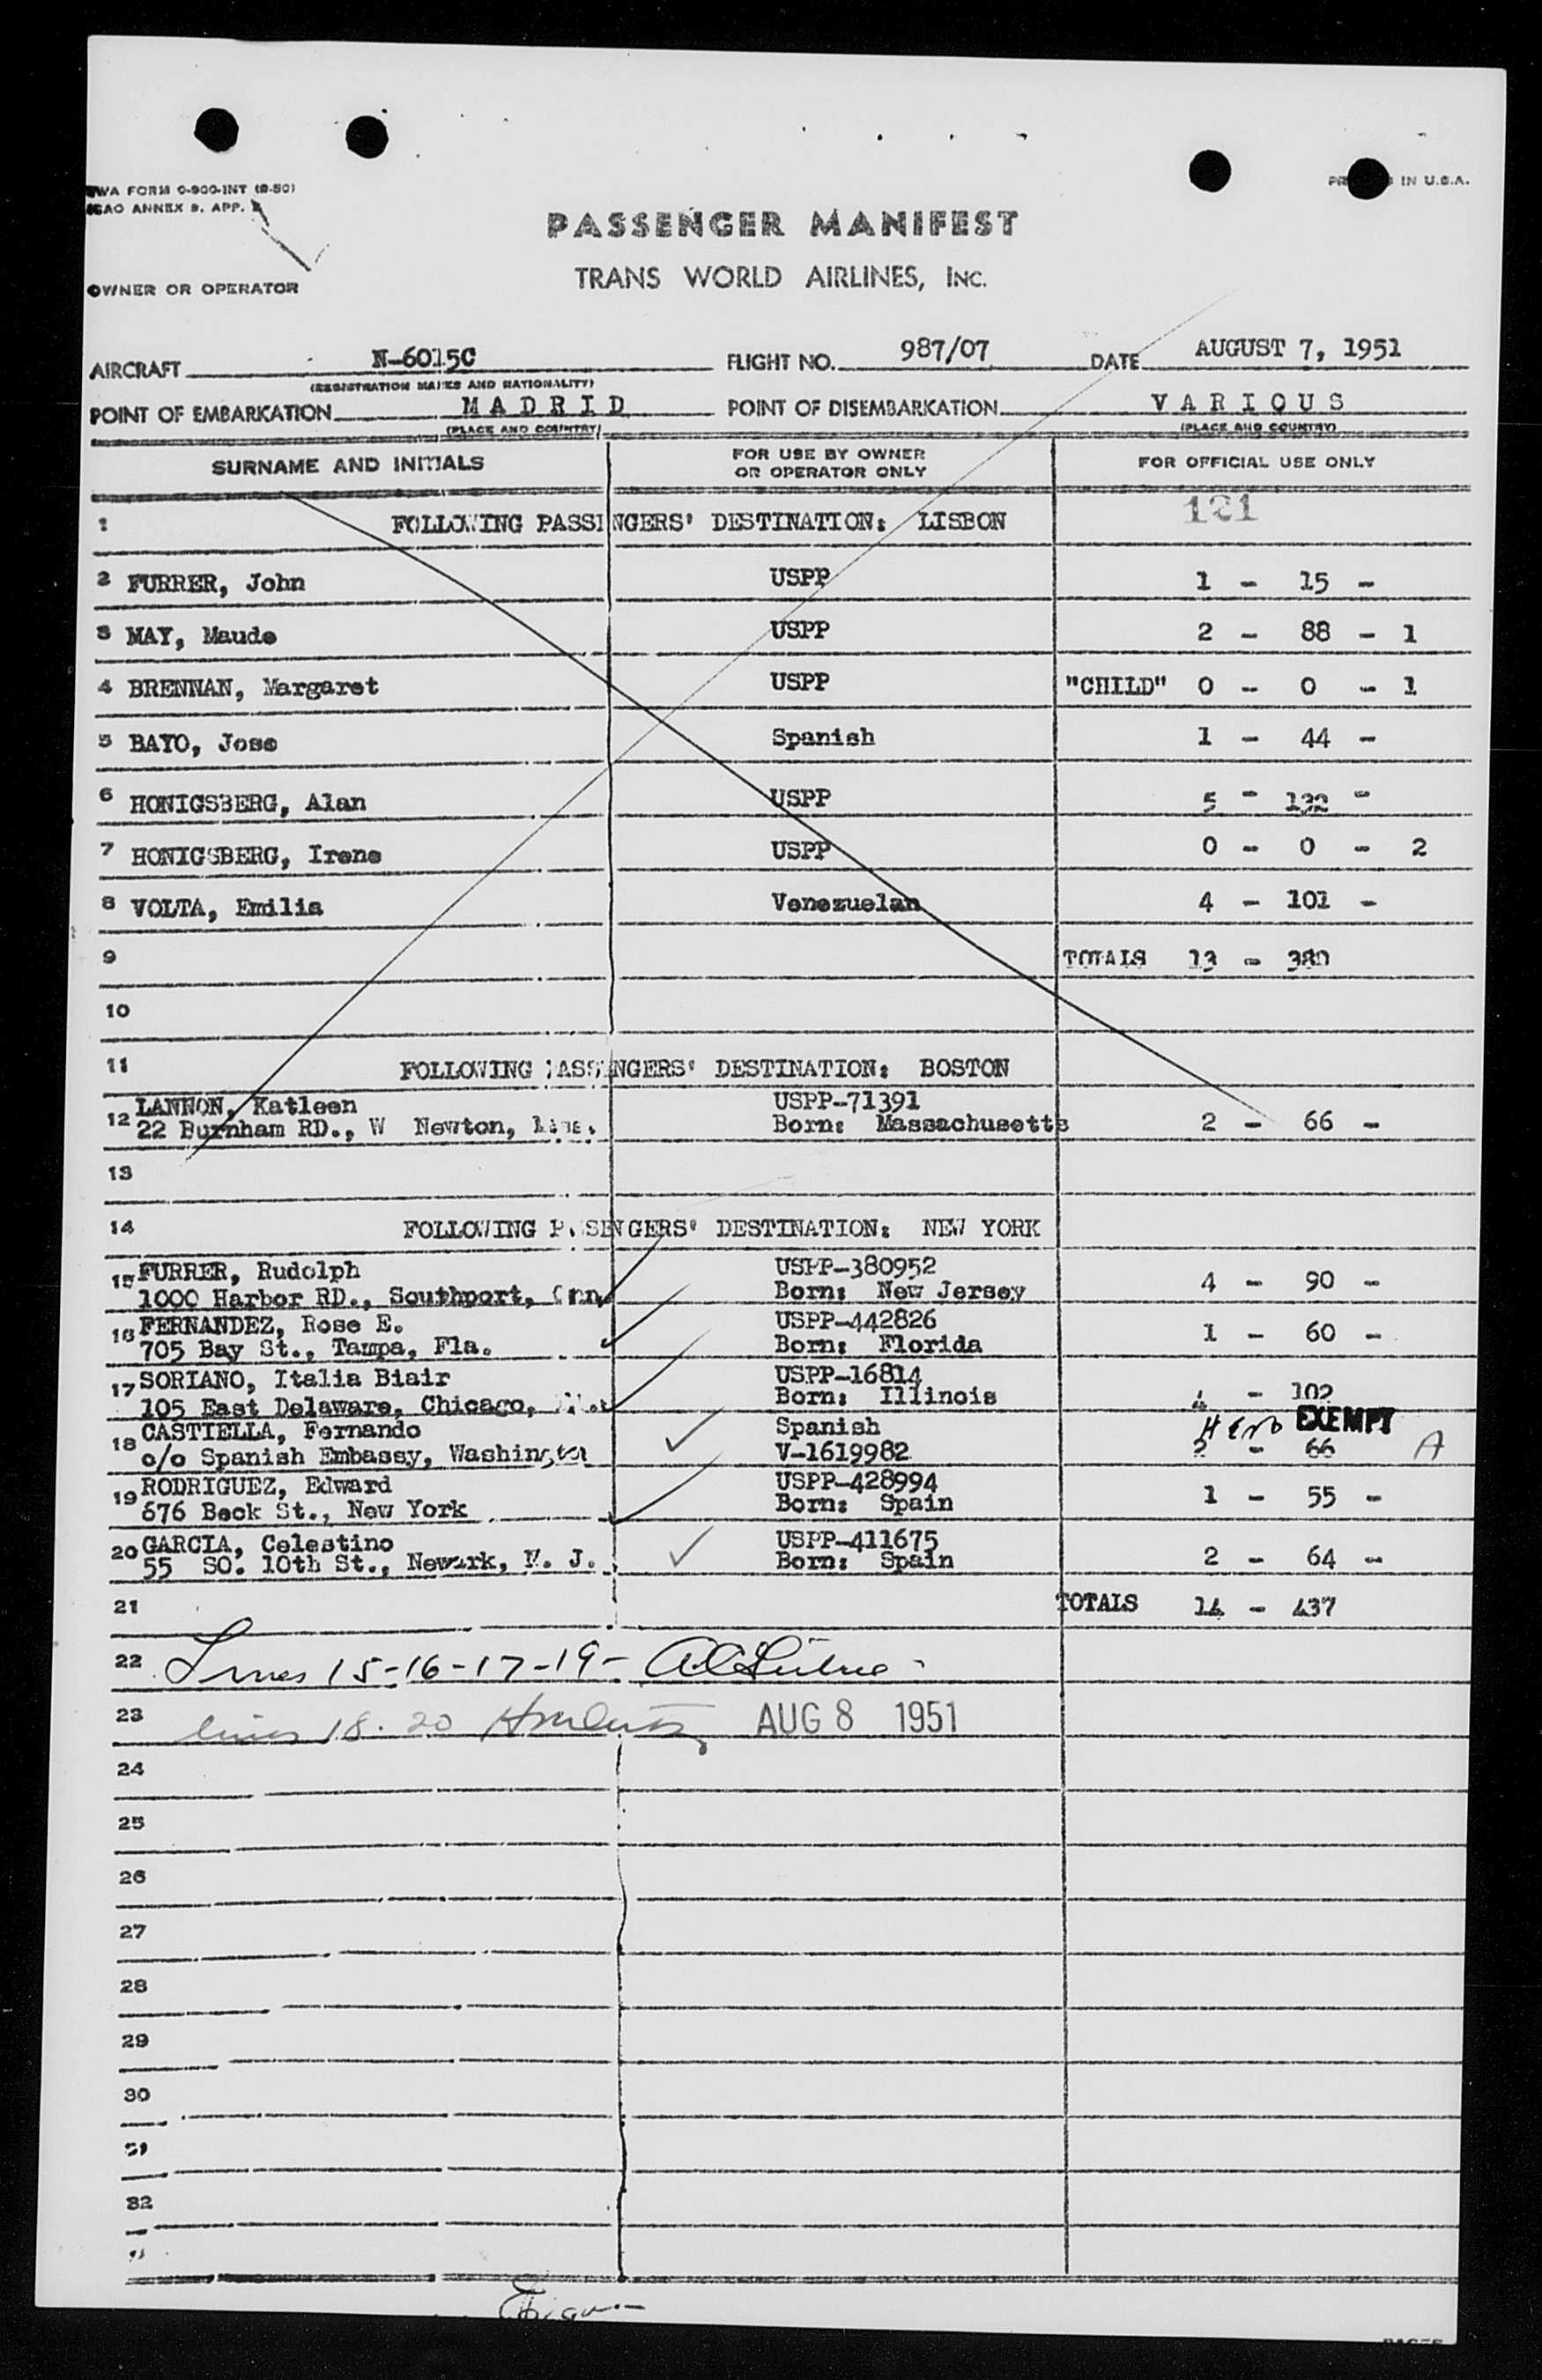 TWA FORM 0-900-INT (8-50)
ICAO ANNEX 9. APP.
PRINTED IN U.S.A.
PASSENGER MANIFEST
TRANS WORLD AIRLINES, INC.
OWNER OR OPERATOR
AIRCRAFT N-6015C FLIGHT NO. 987/07 DATE AUGUST 7, 1951
(REGISTRATION MARKS AND NATIONALITY)
POINT OF EMBARKATION M A D R I D POINT OF DISEMBARKATION V A R I O U S
(PLACE AND COUNTRY) (PLACE AND COUNTRY)
SURNAME AND INITIALS FOR USE BY OWNER OR OPERATOR ONLY FOR OFFICIAL USE ONLY
1 FOLLOWING PASSENGERS' DESTINATION: LISBON 121
2 FURRER, John USPP 1 - 15 -
3 MAY, Maude USPP 2 - 88 - 1
4 BRENNAN, Margaret USPP "CHILD" 0 - 0 - 1
5 BAYO, Jose Spanish 1 - 44 -
6 HONIGSBERG, Alan USPP 5 - 132 -
7 HONIGSBERG, Irene USPP 0 - 0 - 2
8 VOLTA, Emilia Venezuelan 4 - 101 -
9 TOTALS 13 - 380
10
11 FOLLOWING PASSENGERS' DESTINATION: BOSTON
12 LANNON, Katleen USPP-71391
22 Burnham RD., W Newton, Mass. Born: Massachusetts 2 - 66 -
13
14 FOLLOWING PASSENGERS' DESTINATION: NEW YORK
15 FURRER, Rudolph USPP-380952
1000 Harbor RD., Southport, Conn Born: New Jersey 4 - 90 -
16 FERNANDEZ, Rose E. USPP-442826
705 Bay St., Tampa, Fla. Born: Florida 1 - 60 -
17 SORIANO, Italia Biair USPP-16814
105 East Delaware, Chicago, Born: Illinois 4 - 102
18 CASTIELLA, Fernando Spanish EXEMPT
c/o Spanish Embassy, Washington V-1619982 2 - 66 A
19 RODRIGUEZ, Edward USPP-428994
676 Beck St., New York Born: Spain 1 - 55 -
20 GARCIA, Celestino USPP-411675
55 SO. 10th St., Newark, N. J. Born: Spain 2 - 64 -
21 TOTALS 14 - 437
22 Lines 15-16-17-19-
23 lines 18. 20 AUG 8 1951
24
25
26
27
28
29
30
31
32